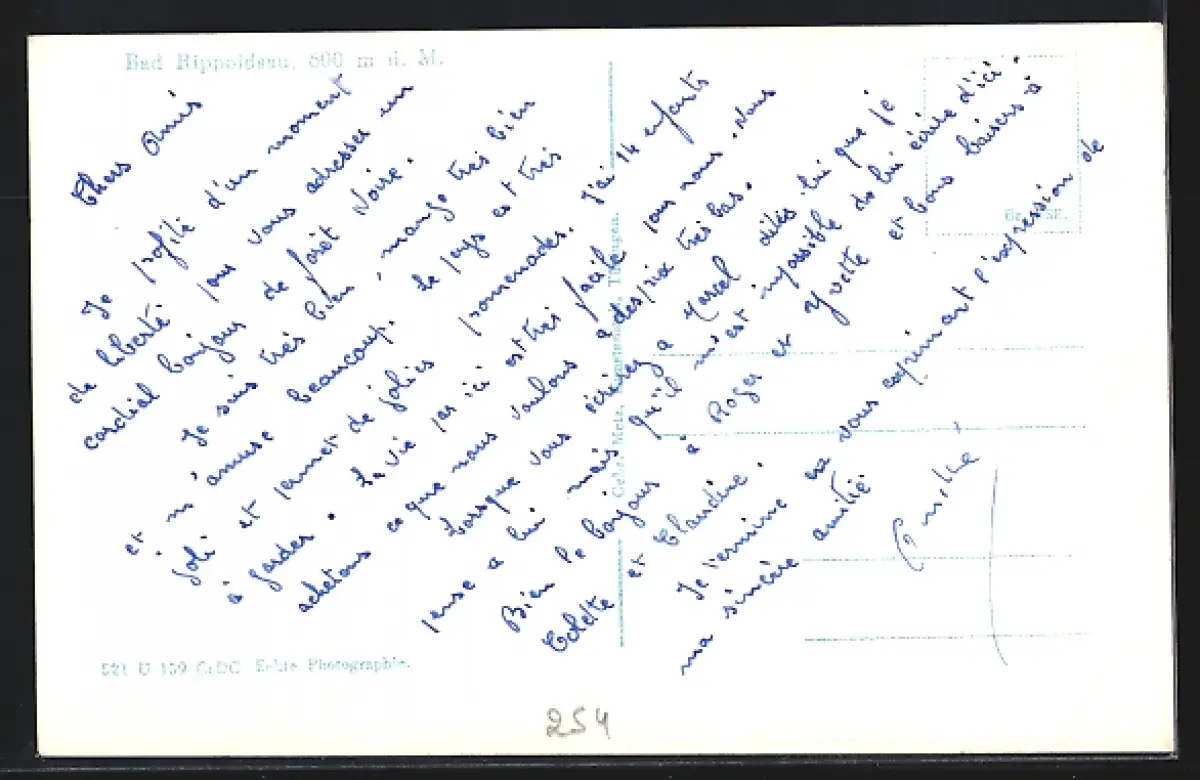 Bad Rippoldsau, 600 m ü. M.
Chers Amis
Je profite d'un moment
de liberté pour vous adresser un
cordial bonjour de forêt Noire.
Je suis très bien, mange très bien
et m'amuse beaucoup. Le pays est très
joli et permet de jolies promenades. J'ai 14 enfants
à garder. La vie par ici est très facile pour nous. Nous
achetons ce que nous voulons a des prix très bas.
Lorsque vous écrirez a Marcel dites lui que je
pense a lui mais qu'il m'est impossible de lui écrire d'ici.
Bien le bonjour à Roger et Yvette et bons baisers à
Colette et Claudine.
Je termine en vous exprimant l'expression de
ma sincère amitié.
Gebr. Metz, Tübingen.
521 U 139 CcDC Echte Photographie.
254